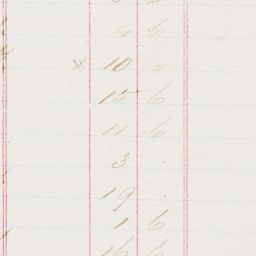 4 6
x 10 "
15 6
11 6
3 .
19 .
1 6
16 6